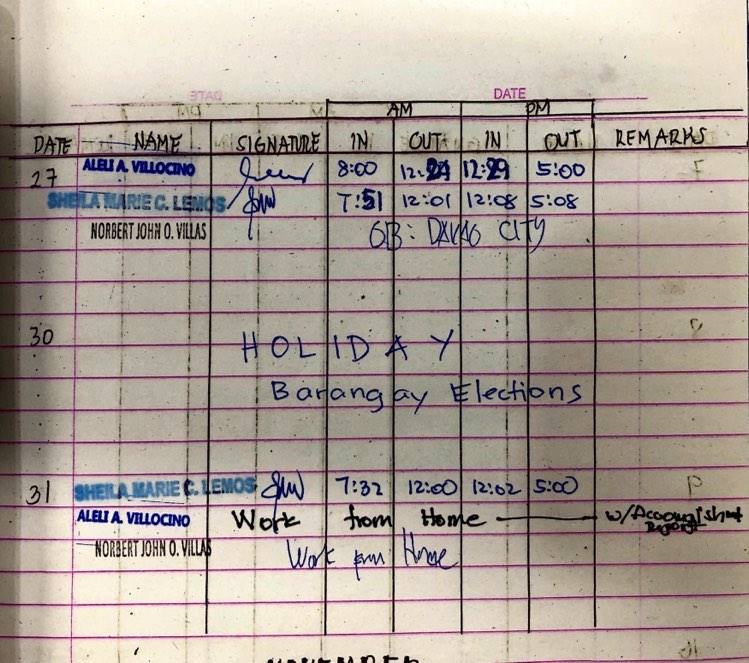 DATE
AM PM
DATE NAME SIGNATURE IN OUT IN OUT REMARKS
27 ALELI A. VILLOCINO 8:00 12:29 12:29 5:00
SHEILA MARIE C. LEMOS 7:51 12:01 12:08 5:08
NORBERT JOHN O. VILLAS OB: DAVAO CITY
30 HOLIDAY
Barangay Elections
31 SHEILA MARIE C. LEMOS 7:32 12:00 12:02 5:00
ALELI A. VILLOCINO Work from Home w/Accomplishment
Report
NORBERT JOHN O. VILLAS Work from Home
NOVEMBER